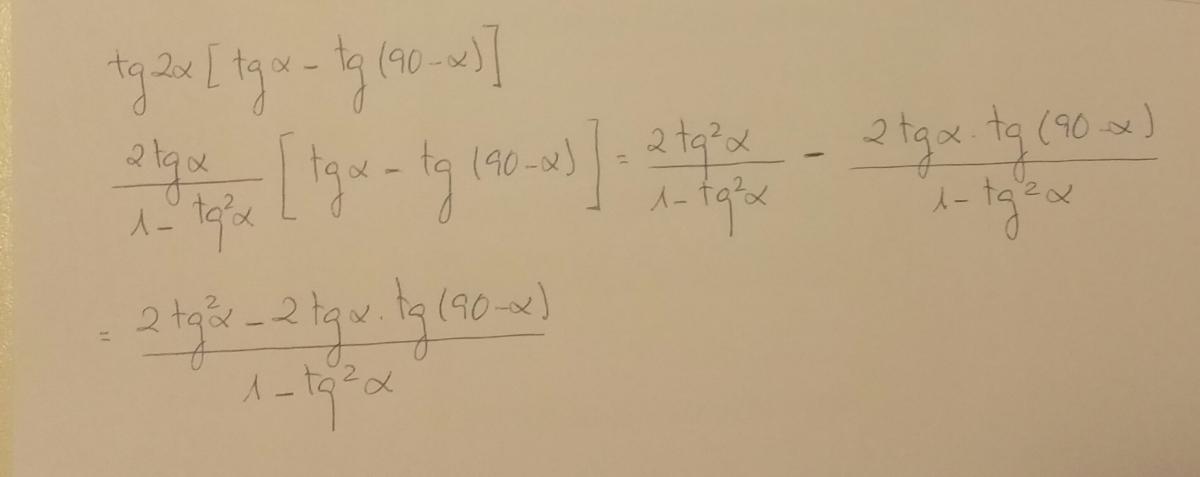 tg2α [tgα - tg (90-α)]
2tgα / 1 - tg²α [tgα - tg (90-α)] = 2tg²α / 1 - tg²α - 2tgα · tg (90-α) / 1 - tg²α
= 2tg²α - 2tgα · tg (90-α) / 1 - tg²α